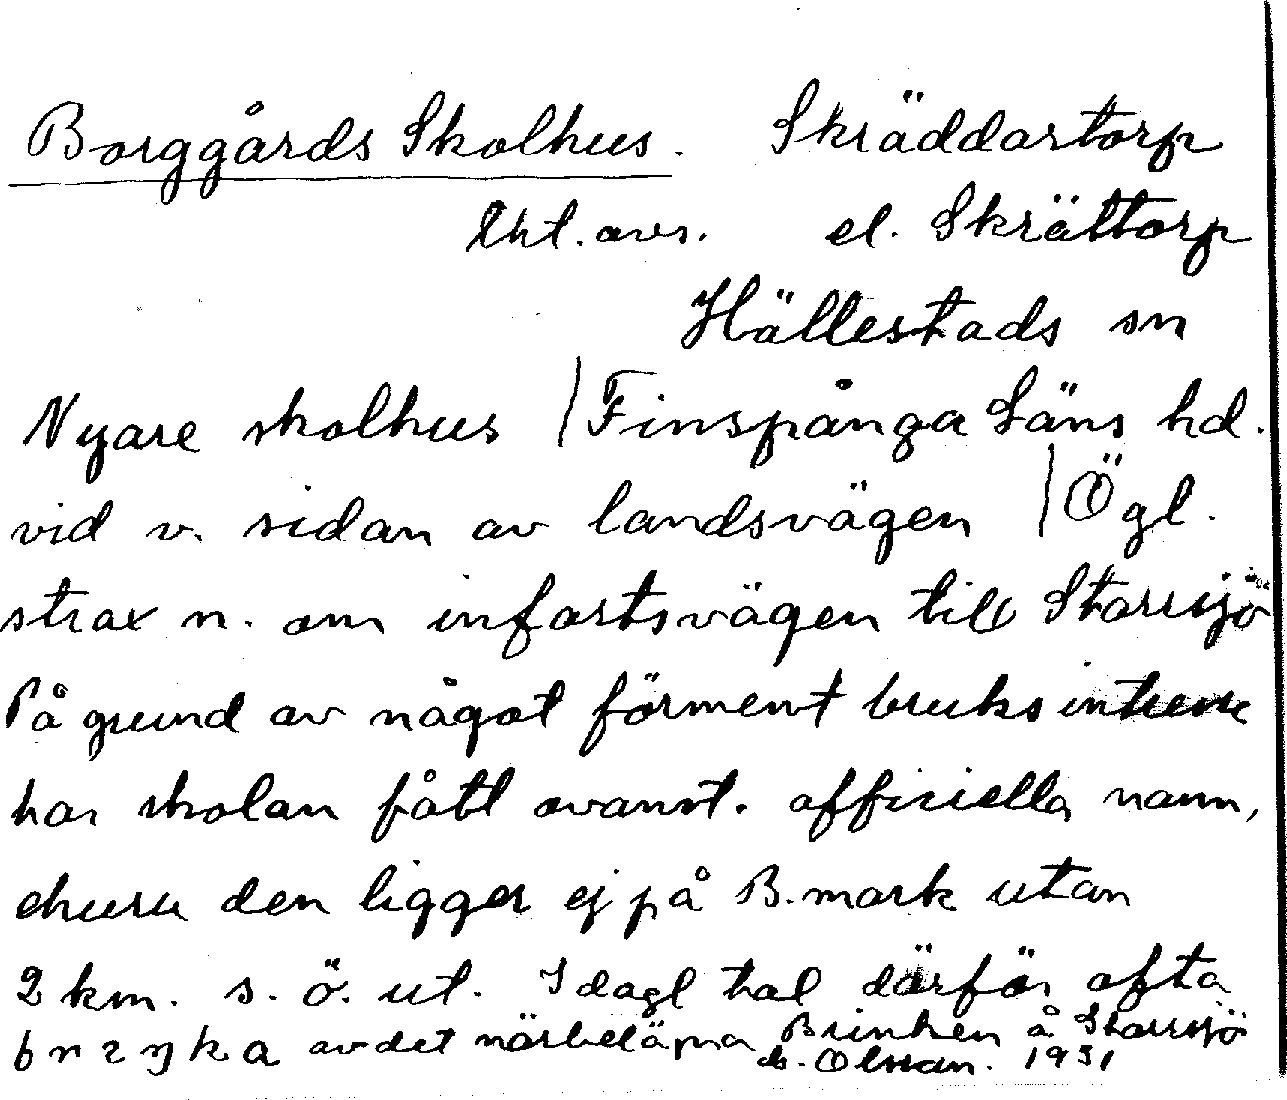 Borggårds Skolhus. Skräddartorp
Uttl. avs. el. Skrättorp
Hällestads sn
Nyare skolhus / Finspånga Läns hd.
vid v. sidan av landsvägen / Ögl.
strax n. om infartsvägen till Storsjö
På grund av något förment bruksintresse
har skolan fått ovannt. officiella namn,
churu den ligger ej på B.mark utan
2 km. s. ö. ut. I dagl tal därför ofta
av det närbelägna Brinken å Storsjö
Olsson. 1931